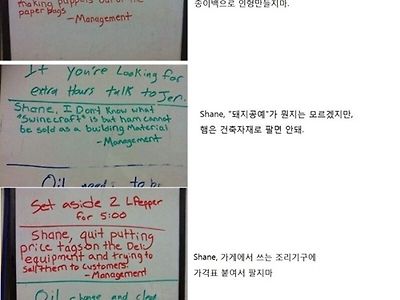 making puppets out of the
paper bags
-Management
종이백으로 인형만들지마.
If you're Looking for
extra Hours talk to Jen.
Shane, I Don't Know what
"Swinecraft" is but ham cannot
be sold as a building Material
-Management
Shane, "돼지공예"가 뭔지는 모르겠지만,
햄은 건축자재로 팔면 안돼.
Set aside 2 LPepper
for 5:00
Shane, quit putting
price tags on the Deli
equipment and trying to
sell them to customers.
-Management
Shane, 가게에서 쓰는 조리기구에
가격표 붙여서 팔지마
Oil change and clean